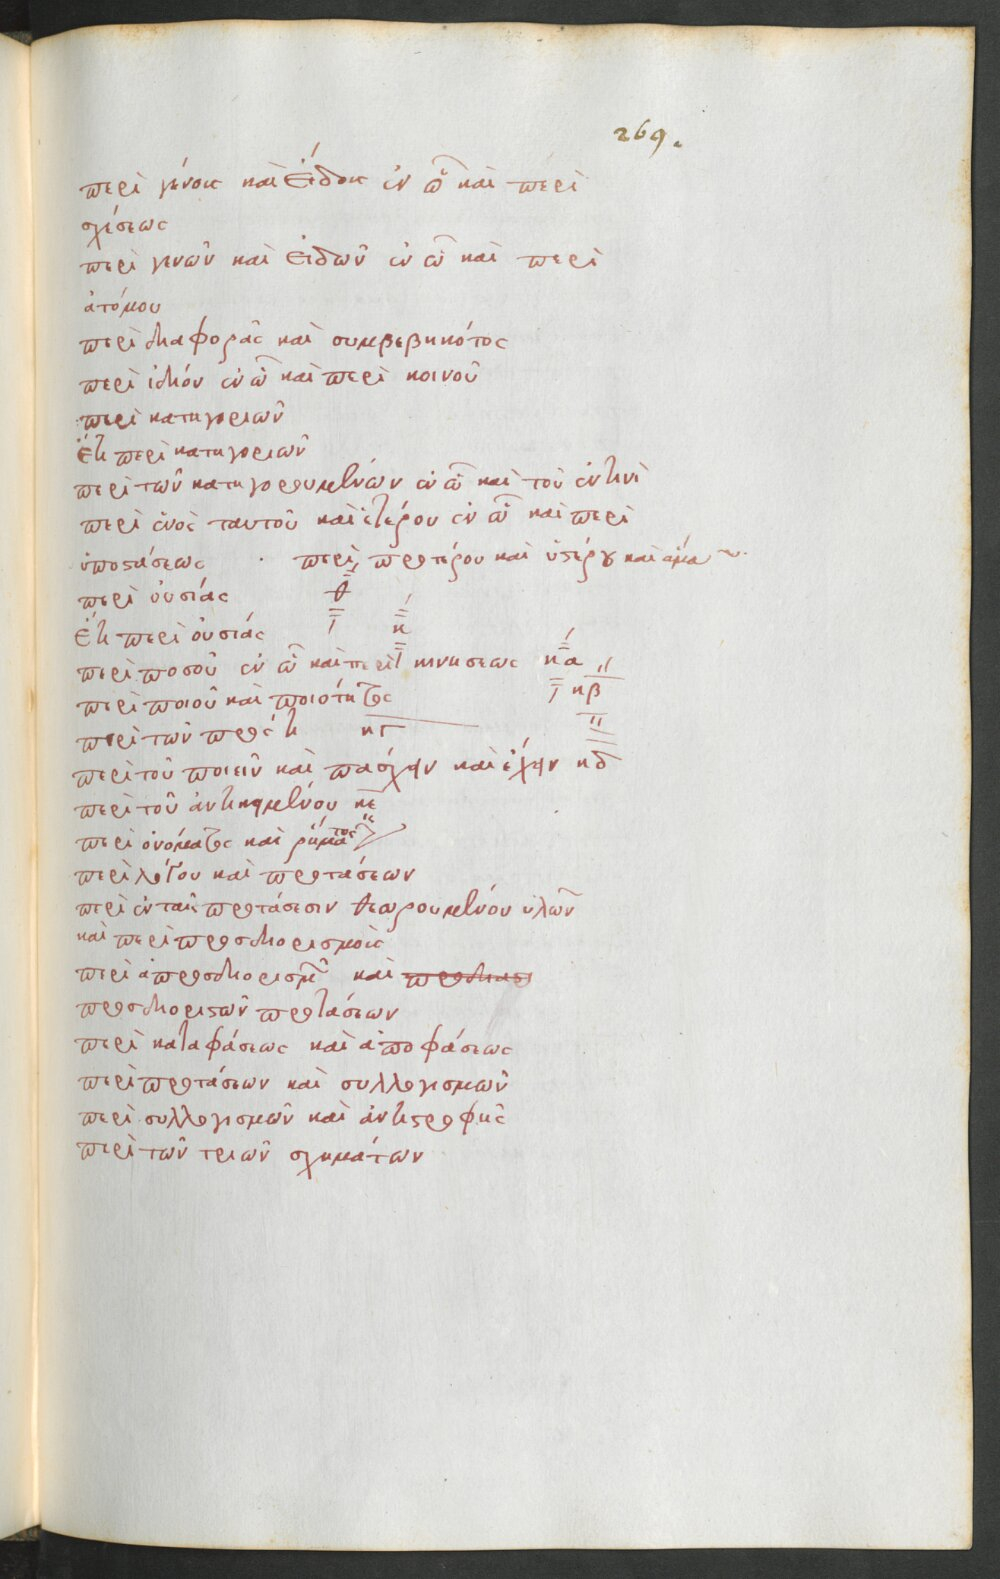 269.
περὶ γένους καὶ εἴδους ἐν ᾧ καὶ περὶ
σχέσεως
περὶ γενῶν καὶ εἰδῶν ἐν ᾧ καὶ περὶ
ἀτόμου
περὶ διαφορᾶς καὶ συμβεβηκότος
περὶ ἰδίου ἐν ᾧ καὶ περὶ κοινοῦ
περὶ κατηγοριῶν
ἔτι περὶ κατηγοριῶν
περὶ τῶν κατηγορουμένων ἐν ᾧ καὶ τοῦ ἐν τινὶ
περὶ ἑνὸς ταυτοῦ καὶ ἑτέρου ἐν ᾧ καὶ περὶ
ὑποστάσεως περὶ προτέρου καὶ ὑστέρου καὶ ἅμα
περὶ οὐσίας
ἔτι περὶ οὐσίας κ
περὶ ποσοῦ ἐν ᾧ καὶ περὶ κινήσεως κα
περὶ ποιοῦ καὶ ποιότητος κβ
περὶ τῶν πρός τι κγ
περὶ τοῦ ποιεῖν καὶ πάσχειν καὶ ἔχειν κδ
περὶ τοῦ ἀντικειμένου κε
περὶ ὀνόματος καὶ ῥήματος
περὶ λόγου καὶ προτάσεων
περὶ ἐν ταῖς προτάσεσιν θεωρουμένου ὑλῶν
καὶ περὶ προσδιορισμοῖς
περὶ ἀπροσδιορισμ καὶ
προσδιοριστῶν προτάσεων
περὶ καταφάσεως καὶ ἀποφάσεως
περὶ προτάσεων καὶ συλλογισμῶν
περὶ συλλογισμῶν καὶ ἀντιστροφῆς
περὶ τῶν τριῶν σχημάτων